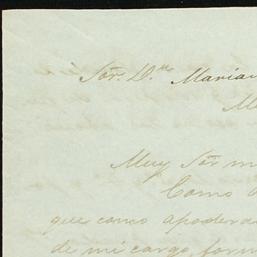 Sõr. D.ⁿ Marian
M
Muy Sõr m
Como
que como apodera
de mi cargo, form